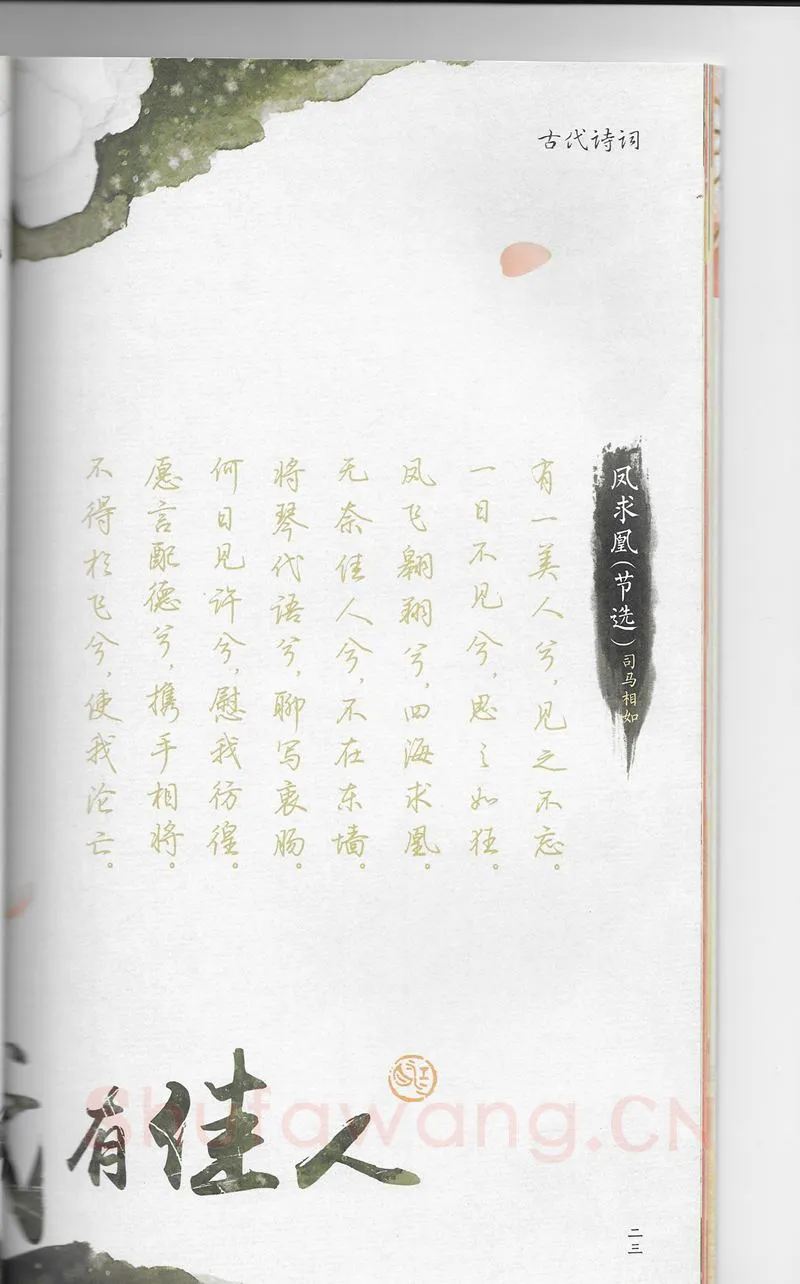 古代诗词
凤求凰(节选)司马相如
有一美人兮,见之不忘。
一日不见兮,思之如狂。
凤飞翱翔兮,四海求凰。
无奈佳人兮,不在东墙。
将琴代语兮,聊写衷肠。
何日见许兮,慰我彷徨。
愿言配德兮,携手相将。
不得於飞兮,使我沦亡。
有佳人
Shufawang.CN
二三